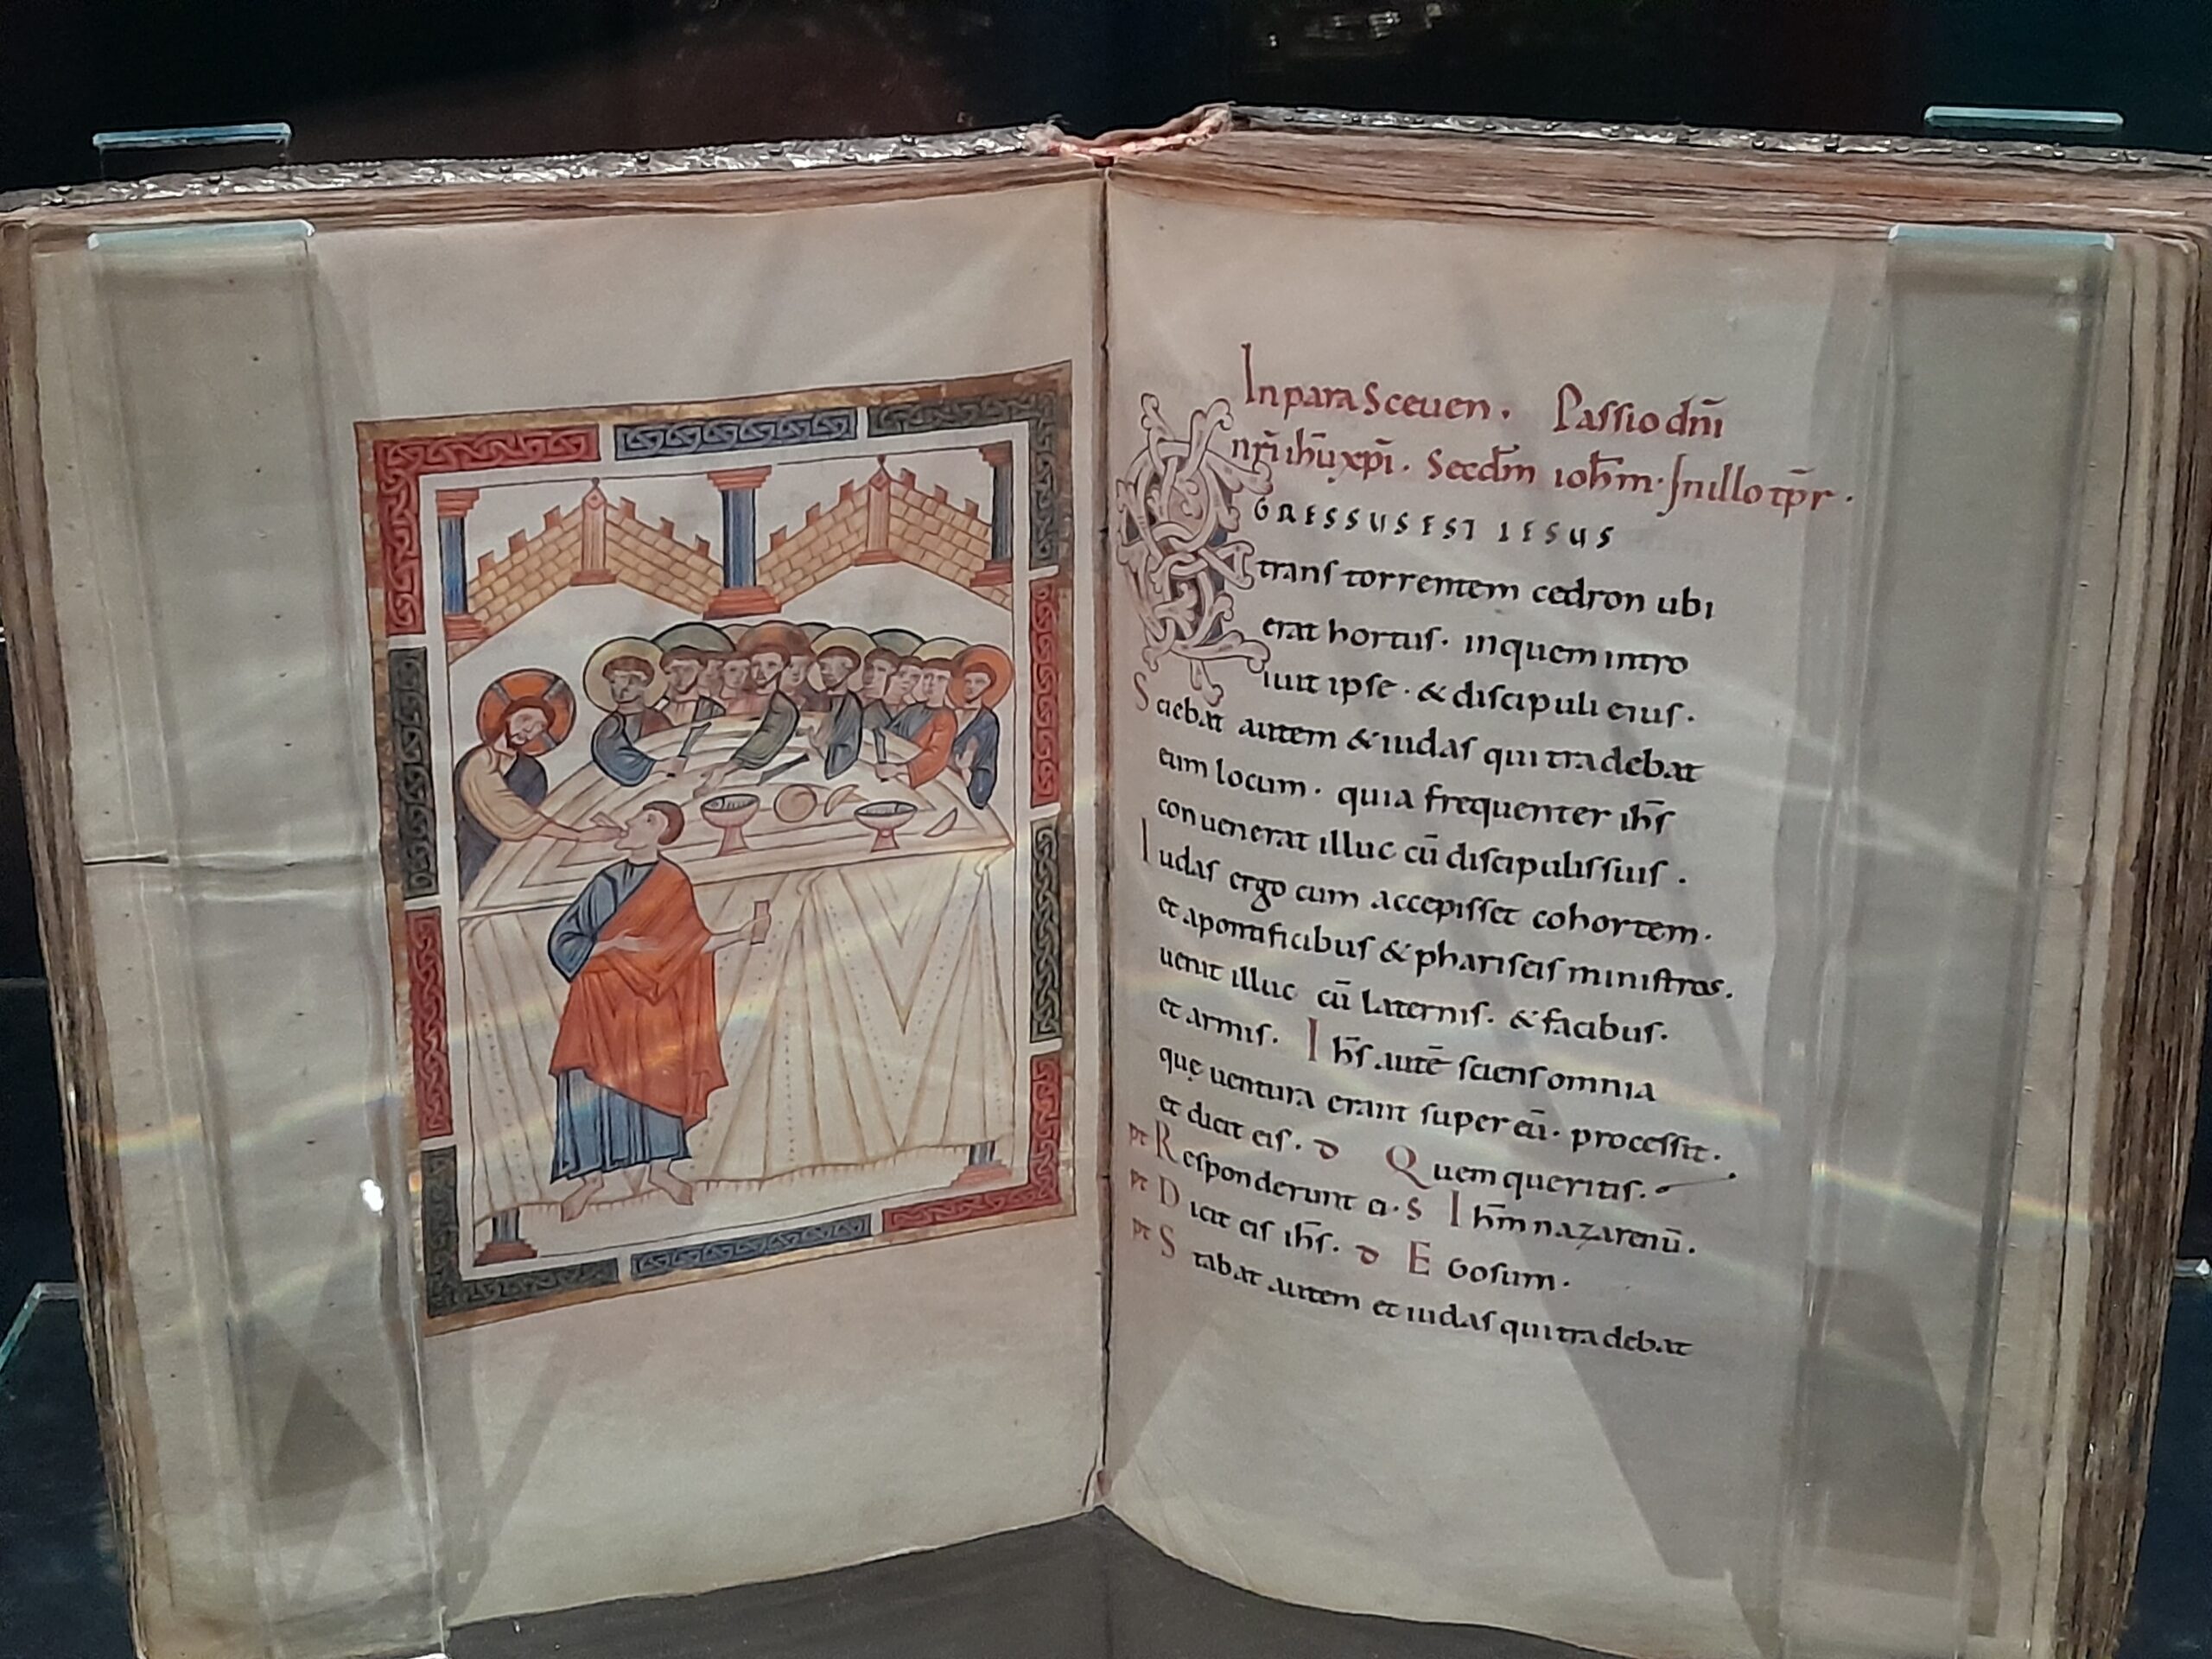 In parasceuen. Passio dn̄i
nr̄i ih̄u xp̄i. Secdm̄ ioh̄m. In illo tp̄r.
EGRESSUS EST IESUS
tranſ torrentem cedron ubi
erat hortuſ. in quem intro
iuit ipſe. & diſcipuli eiuſ.
Sciebat autem & iudaſ qui tradebat
eum locum. quia frequenter ih̄ſ
conuenerat illuc cū diſcipuliſ ſuiſ.
Iudaſ ergo cum accepiſſet cohortem.
et a pontificibuſ & phariſeiſ miniſtros.
uenit illuc cū laterniſ. & facibuſ.
et armiſ. Ih̄ſ autē ſcienſ omnia
quę uentura erant ſuper eū. proceſſit.
et dicit eiſ. Quem queritiſ.
Reſponderunt ei. S Ih̄m nazarenū.
Dicit eiſ ih̄ſ. Ego ſum.
Stabat autem et iudaſ qui tradebat